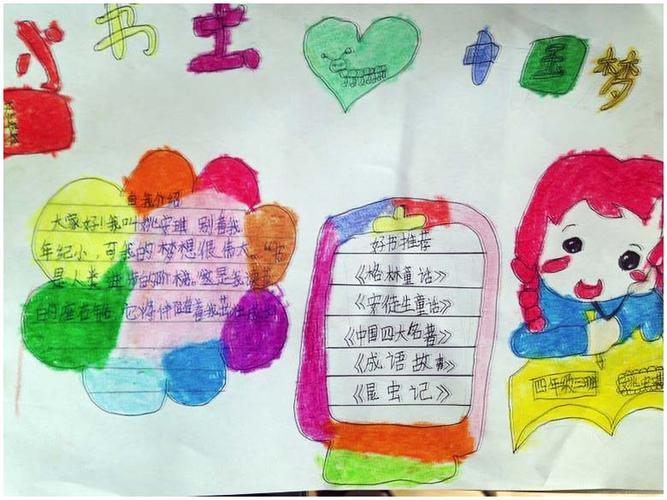 小书士 中国梦
自我介绍
大家好!我叫姚安琪 别看我
年纪小,可我的梦想很伟大。“书
是人类进步的阶梯。这是我读书
的座右铭,它将伴随着我茁壮成长
好书推荐
《格林童话》
《安徒生童话》
《中国四大名著》
《成语故事》
《昆虫记》
四年级三班